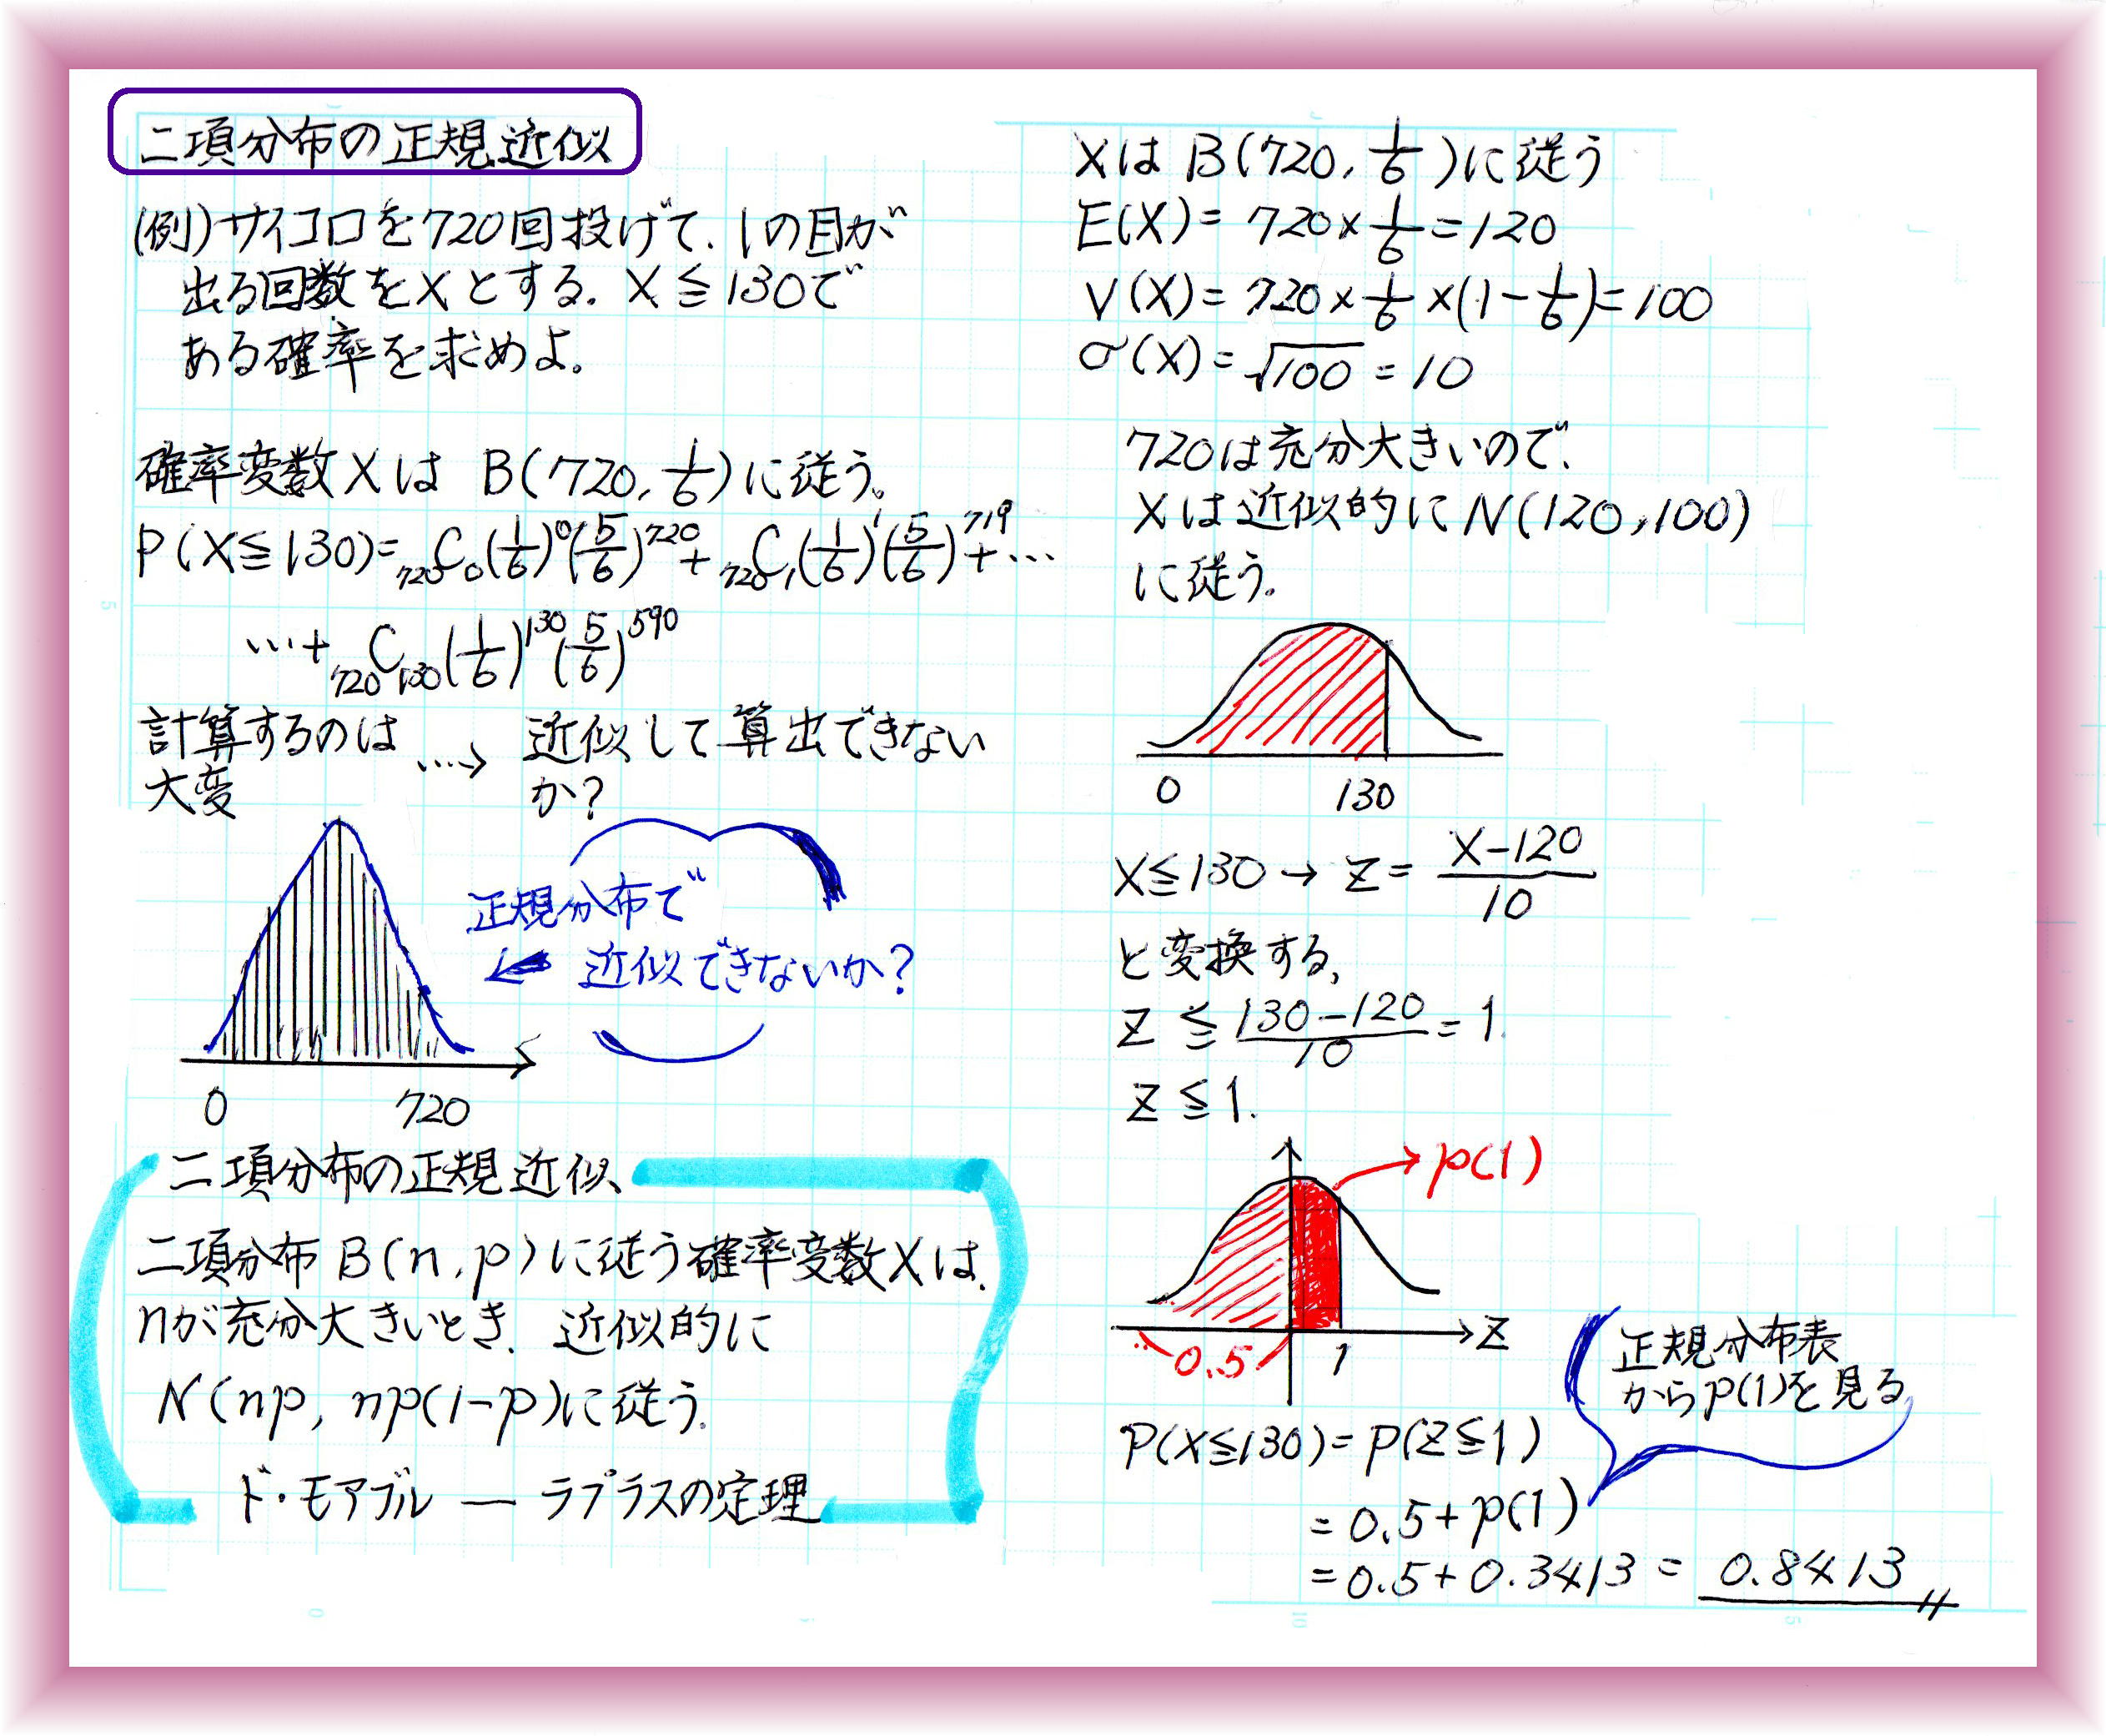 二項分布の正規近似
(例)サイコロを720回投げて、1の目が
出る回数をXとする。X≦130で
ある確率を求めよ。
確率変数Xは B(720, 1/6)に従う。
P(X≦130)=₇₂₀C₀(1/6)⁰(5/6)⁷²⁰+₇₂₀C₁(1/6)¹(5/6)⁷¹⁹+…
…+₇₂₀C₁₃₀(1/6)¹³⁰(5/6)⁵⁹⁰
計算するのは
大変
…→ 近似して算出できない
か?
正規分布で
← 近似できないか?
0 720
二項分布の正規近似
二項分布 B(n, p)に従う確率変数Xは、
nが充分大きいとき、近似的に
N(np, np(1-p)に従う。
ド・モアブル ― ラプラスの定理
Xは B(720, 1/6)に従う
E(X)= 720×1/6=120
V(X)= 720×1/6×(1-1/6)=100
σ(X)=√100=10
720は充分大きいので、
Xは近似的にN(120,100)
に従う。
0 130
X≦130→Z= (X-120)/10
と変換する。
Z ≦ (130-120)/10 = 1.
Z ≦ 1.
→p(1)
→Z
0.5 1
正規分布表
からp(1)を見る
P(X≦130)=P(Z≦1)
=0.5+p(1)
=0.5+0.3413= 0.8413